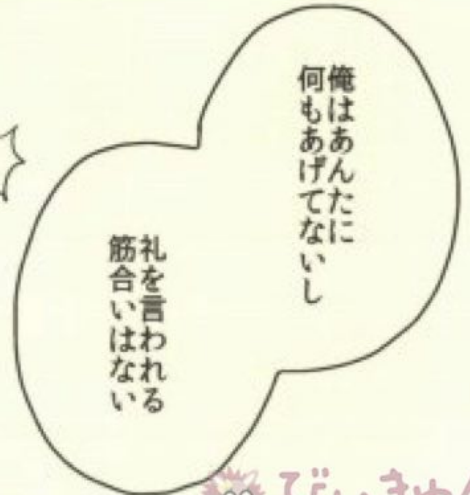 俺はあんたに
何もあげてないし
礼を言われる
筋合いはない